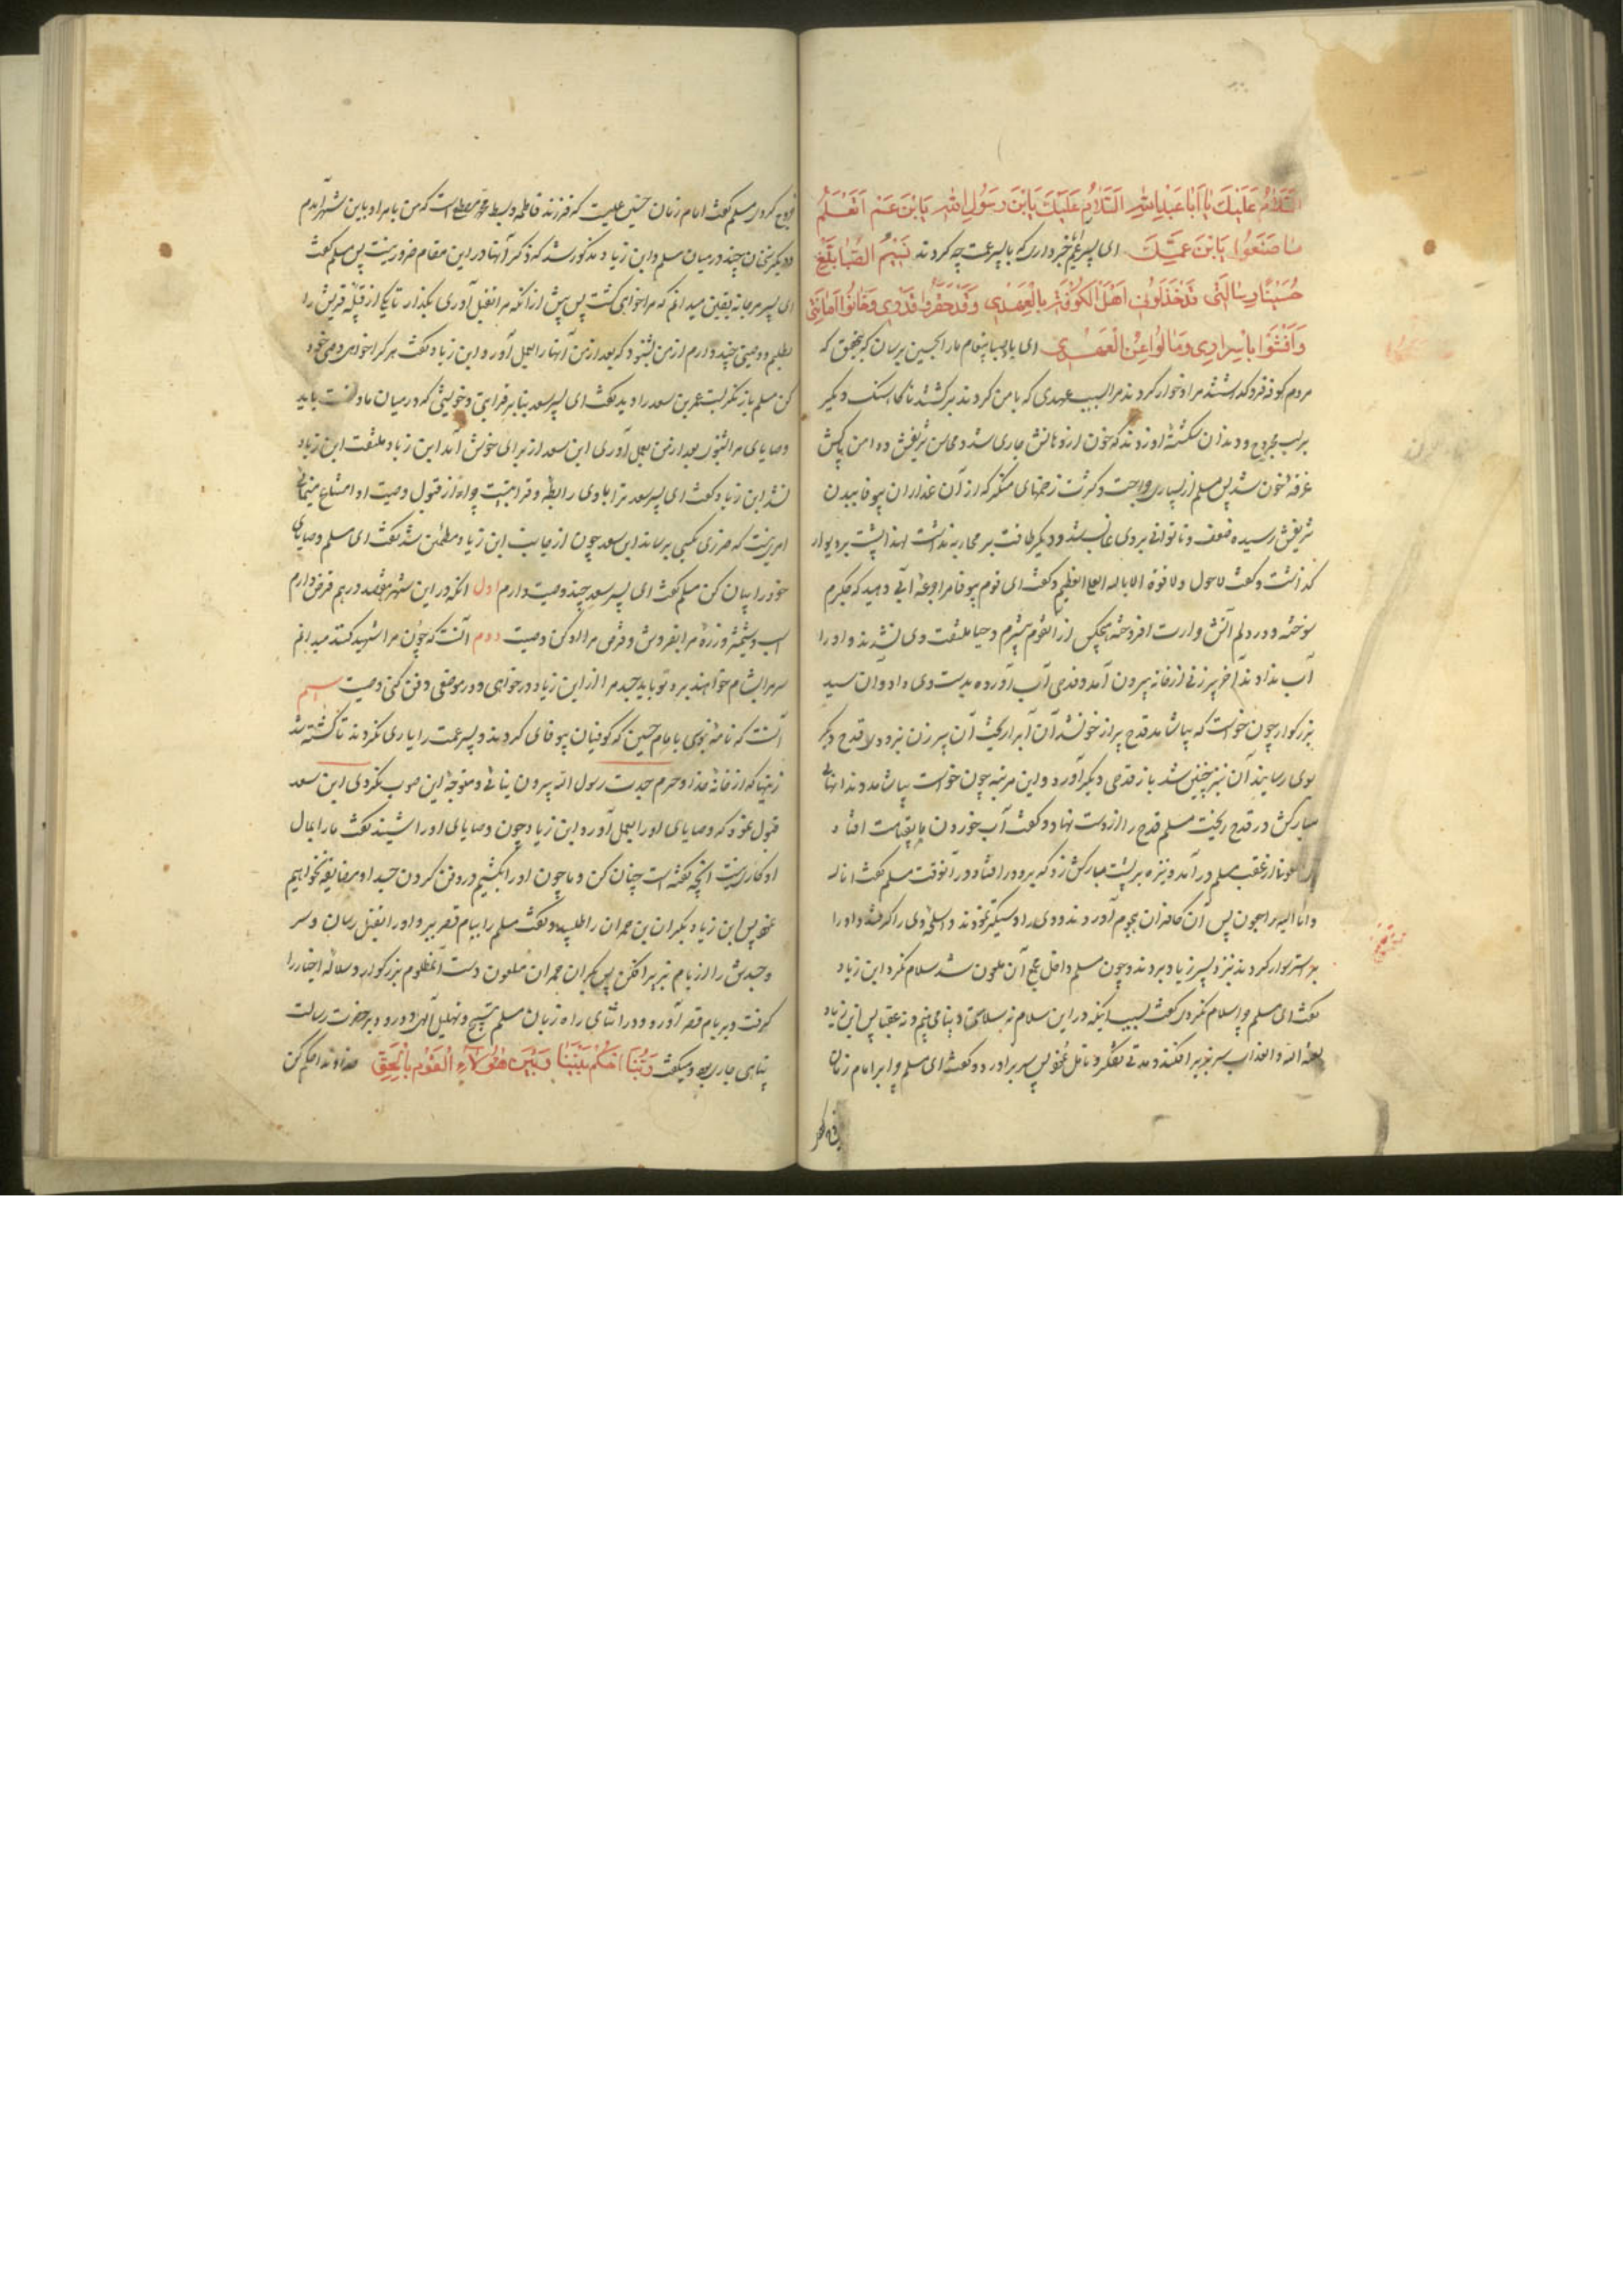 السلام علیک یا ابا عبد الله السلام علیک یابن رسول الله یابن عم اتعلم
ما صنعوا یابن عمک ای پسر عم خبر داری که با پسر عمت چه کردند نسیم الصبا بلغ
حسینا رسالتی اهل الکوفة بالعهد وقد حقروا قدری وخانوا امانتی
وافشوا باسراری ومالوا عن العهد ای باد صبا پیغام ما را بحسین برسان که بتحقیق که
مردم کوفه فرو گذاشتند مرا و خوار کردند مرا بسبب عهدی که با من کردند برگشتند ناگاه سنگ دیگر
بر لب مجروح و دندان شکسته او زدند که خون از دهانش جاری شد و محاسن شریفش و دامن پاکش
غرقه بخون شد پس مسلم از بسیاری جراحت و کثرت زخمهای منکر که از آن غداران بیوفا ببدن
شریفش رسیده ضعف و ناتوانی بر وی غالب شد و دیگر طاقت بر محاربه نداشت لهذا پشت بر دیوار
گذاشت و گفت لا حول ولا قوة الا بالله العلی العظیم و گفت ای قوم بیوفا مرا جرعه آبی دهید که جگرم
سوخته و در دلم آتش وارست افروخته هیچکس از آن قوم بیشرم و حیا ملتفت وی نشدند و او را
آب ندادند آخر پیرزنی از خانه بیرون آمد و قدحی آب آورده بدست وی داد و آن سید
بزرگوار چون خواست که بیاشامد قدح پر از خون شد آن آب را ریخت آن پیرزن بزودی قدح دیگر
بوی رسانید آن نیز چنین شد باز قدحی دیگر آورد و این مرتبه چون خواست بیاشامد دندانهای
مبارکش در قدح ریخت مسلم قدح را از دست نهاد و گفت آب خوردن ما بقیامت افتاد
از عقب مسلم در آمد و نیزه بر پشت مبارکش زد که برو در افتاد و در آنوقت مسلم گفت انا لله
وانا الیه راجعون پس آن کافران هجوم آوردند و وی را دستگیر نمودند و اسلحه وی را گرفتند و او را
بر استر سوار کردند نزد پسر زیاد بردند و چون مسلم داخل مجلس آن ملعون شد سلام نکرد ابن زیاد
گفت ای مسلم چرا سلام نکردی گفت بسبب اینکه در این سلام نه سلامتی دنیا می بینم و نه عقبا پس ابن زیاد
لعنه الله والعذاب سر بزیر افکند و مدتی تفکر و تامل نمود پس سر بر آورد و گفت ای مسلم چرا بر امام زمان
خروج کردی مسلم گفت امام زمان حسین علیست که فرزند فاطمه و سبط محمد مصطفی است که من بامر او باین شهر آمدم
و دیگر سخنان چند در میان مسلم و ابن زیاد مذکور شد که ذکر آنها در این مقام ضرور نیست پس مسلم گفت
ای پسر مرجانه یقین میدانم که مرا خواهی کشت پس پیش از آنکه مرا بقتل آوری بگذار تا یکی از قبیله قریش را
بطلبم و وصیتی چند دارم از من بشنود که بعد از من آنها را بعمل آورد ابن زیاد گفت هر کرا خواهی وصی خود
کن مسلم باز نگریست عمر بن سعد را دید گفت ای پسر سعد بنا بر قرابتی و خویشی که در میان ما و تست باید
وصایای مرا بشنوی بعد از من بعمل آوری ابن سعد از برای خوش آمد ابن زیاد ملتفت ابن زیاد
نشد ابن زیاد گفت ای پسر سعد ترا با وی رابطه و قرابتیست چرا از قبول وصیت او امتناع مینمائی
امریست که ضرری بکسی برساند ابن سعد چون از جانب ابن زیاد مطمئن شد گفت ای مسلم وصایای
خود را بیان کن مسلم گفت ای پسر سعد چند وصیت دارم اول آنکه در این شهر هفتصد درهم قرض دارم
اسب و شمشیر و زره مرا بفروش و قرض مرا ادا کن وصیت دوم آنست که چون مرا شهید کنند میدانم
سر مرا بشام خواهند برد تو باید جسد مرا از ابن زیاد در خواهی و در موضعی دفن کنی وصیت سیم
آنست که نامه بنویسی بامام حسین که کوفیان بیوفائی کردند و پسر عمت را یاری نکردند تا کشته شد
زینهار که از خانه خدا و حرم جدت رسول الله بیرون نیائی و متوجه این صوب نگردی ابن سعد
قبول نمود که وصایای او را بعمل آورد ابن زیاد چون وصایای او را شنید گفت ما را بمال
او کاری نیست آنچه گفته است چنان کن و ما چون او را بکشیم در دفن کردن جسد او مضایقه نخواهیم
نمود پس ابن زیاد بکر ابن حمران را طلبید و گفت مسلم را ببام قصر ببر و او را بقتل رسان و سر
و جسدش را از بام بزیر افکن پس بکر ابن حمران ملعون دست آنمظلوم بزرگوار و سلاله اخیار را
گرفت و بر بام قصر آورد و در اثنای راه زبان مسلم بتسبیح و تهلیل الهی و درود بر حضرت رسالت
پناهی جاری بود و میگفت ربنا احکم بیننا وبین هؤلاء القوم بالحق خداوندا حکم کن